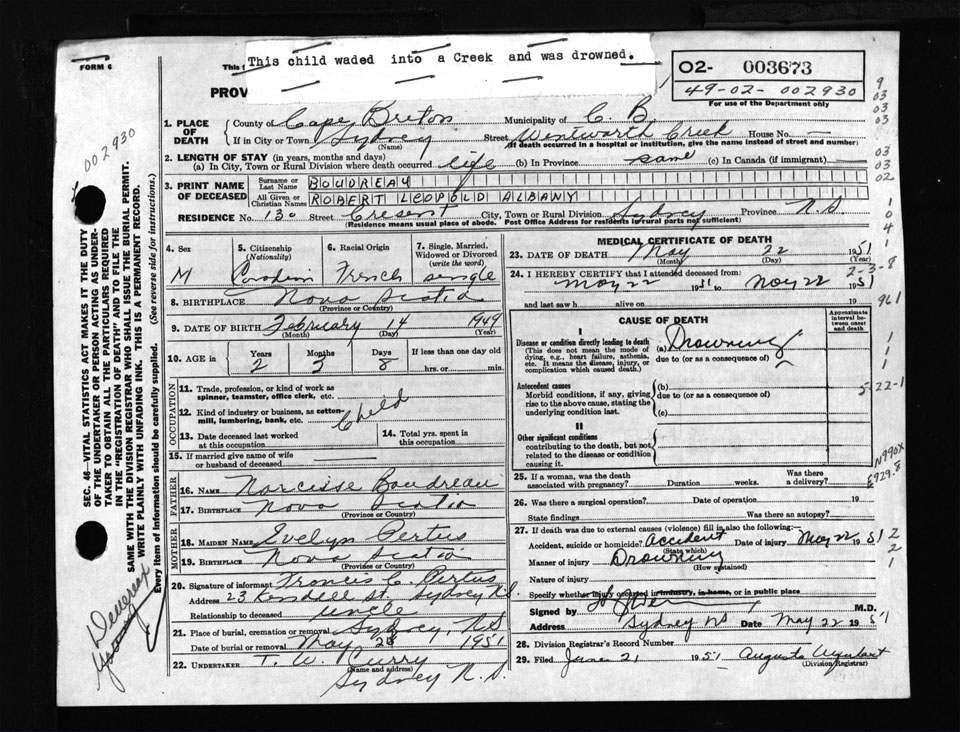 This child waded into a Creek and was drowned.
FORM 6
This
PROV
02- 003673
49-02- 002930
For use of the Department only
1. PLACE OF DEATH
County of Cape Breton Municipality of C. B.
If in City or Town Sydney (Name) Street Wentworth Creek House No. —
(If death occurred in a hospital or institution, give the name instead of street and number)
2. LENGTH OF STAY (in years, months and days)
(a) In City, Town or Rural Division where death occurred life (b) In Province same (c) In Canada (if immigrant) —
3. PRINT NAME OF DECEASED
Surname or Last Name BOUDREAU
All Given or Christian Names ROBERT LEOPOLD ALBANY
RESIDENCE No. 130 Street Cresent City, Town or Rural Division Sydney Province N.S.
(Residence means usual place of abode. Post Office Address for residents in rural parts not sufficient)
4. Sex
M
5. Citizenship (Nationality)
6. Racial Origin
French
7. Single, Married, Widowed or Divorced (write the word)
single
8. BIRTHPLACE Nova Scotia
(Province or Country)
9. DATE OF BIRTH February 14 1949
(Month) (Day) (Year)
10. AGE in Years Months Days If less than one day old
2 3 8 hrs. or min.
OCCUPATION
11. Trade, profession, or kind of work as spinner, teamster, office clerk, etc.
12. Kind of industry or business, as cotton-mill, lumbering, bank, etc.
Child
13. Date deceased last worked at this occupation
14. Total yrs. spent in this occupation
15. If married give name of wife or husband of deceased
FATHER
16. NAME Narcisse Boudreau
17. BIRTHPLACE Nova Scotia
(Province or Country)
MOTHER
18. MAIDEN NAME Evelyn Pertus
19. BIRTHPLACE Nova Scotia
(Province or Country)
20. Signature of informant Francis C. Pertus
Address 23 Kendall St. Sydney N.S.
Relationship to deceased uncle
21. Place of burial, cremation or removal Sydney, N.S.
Date of burial or removal May 1951
22. UNDERTAKER T. W. Curry
(Name and address)
Sydney N.S.
MEDICAL CERTIFICATE OF DEATH
23. DATE OF DEATH May 22 1951
(Month) (Day) (Year)
24. I HEREBY CERTIFY that I attended deceased from:
May 22 1951 to May 22 1951
and last saw h alive on 19
CAUSE OF DEATH
Approximate interval between onset and death
I
Disease or condition directly leading to death
(This does not mean the mode of dying, e.g., heart failure, asthenia, etc. It means the disease, injury, or complication which caused death.)
(a) Drowning
due to (or as a consequence of)
Antecedent causes
Morbid conditions, if any, giving rise to the above cause, stating the underlying condition last.
(b)
due to (or as a consequence of)
(c)
II
Other significant conditions
contributing to the death, but not related to the disease or condition causing it.
25. If a woman, was the death associated with pregnancy? Duration weeks. Was there a delivery?
26. Was there a surgical operation? Date of operation 19
State findings Was there an autopsy?
27. If death was due to external causes (violence) fill in also the following:—
Accident, suicide or homicide? Accident Date of injury May 22 1951
(State which)
Manner of injury Drowning
(How sustained)
Nature of injury
Specify whether injury occurred in industry, in home, or in public place
Signed by M.D.
Address Sydney NS Date May 22 1951
28. Division Registrar's Record Number
29. Filed June 21 1951 Augusta Urquhart
(Division Registrar)
SEC. 46—VITAL STATISTICS ACT MAKES IT THE DUTY
OF THE UNDERTAKER OR PERSON ACTING AS UNDER-
TAKER TO OBTAIN ALL THE PARTICULARS REQUIRED
IN THE "REGISTRATION OF DEATH" AND TO FILE THE
SAME WITH THE DIVISION REGISTRAR WHO SHALL ISSUE THE BURIAL PERMIT.
WRITE PLAINLY WITH UNFADING INK. THIS IS A PERMANENT RECORD.
Every item of information should be carefully supplied. (See reverse side for instructions.)
002930
9
03
03
03
03
03
02
1
0
4
1
2-3-8
961
1
1
1
5-22-1
N990X
E929.8
2
2
1